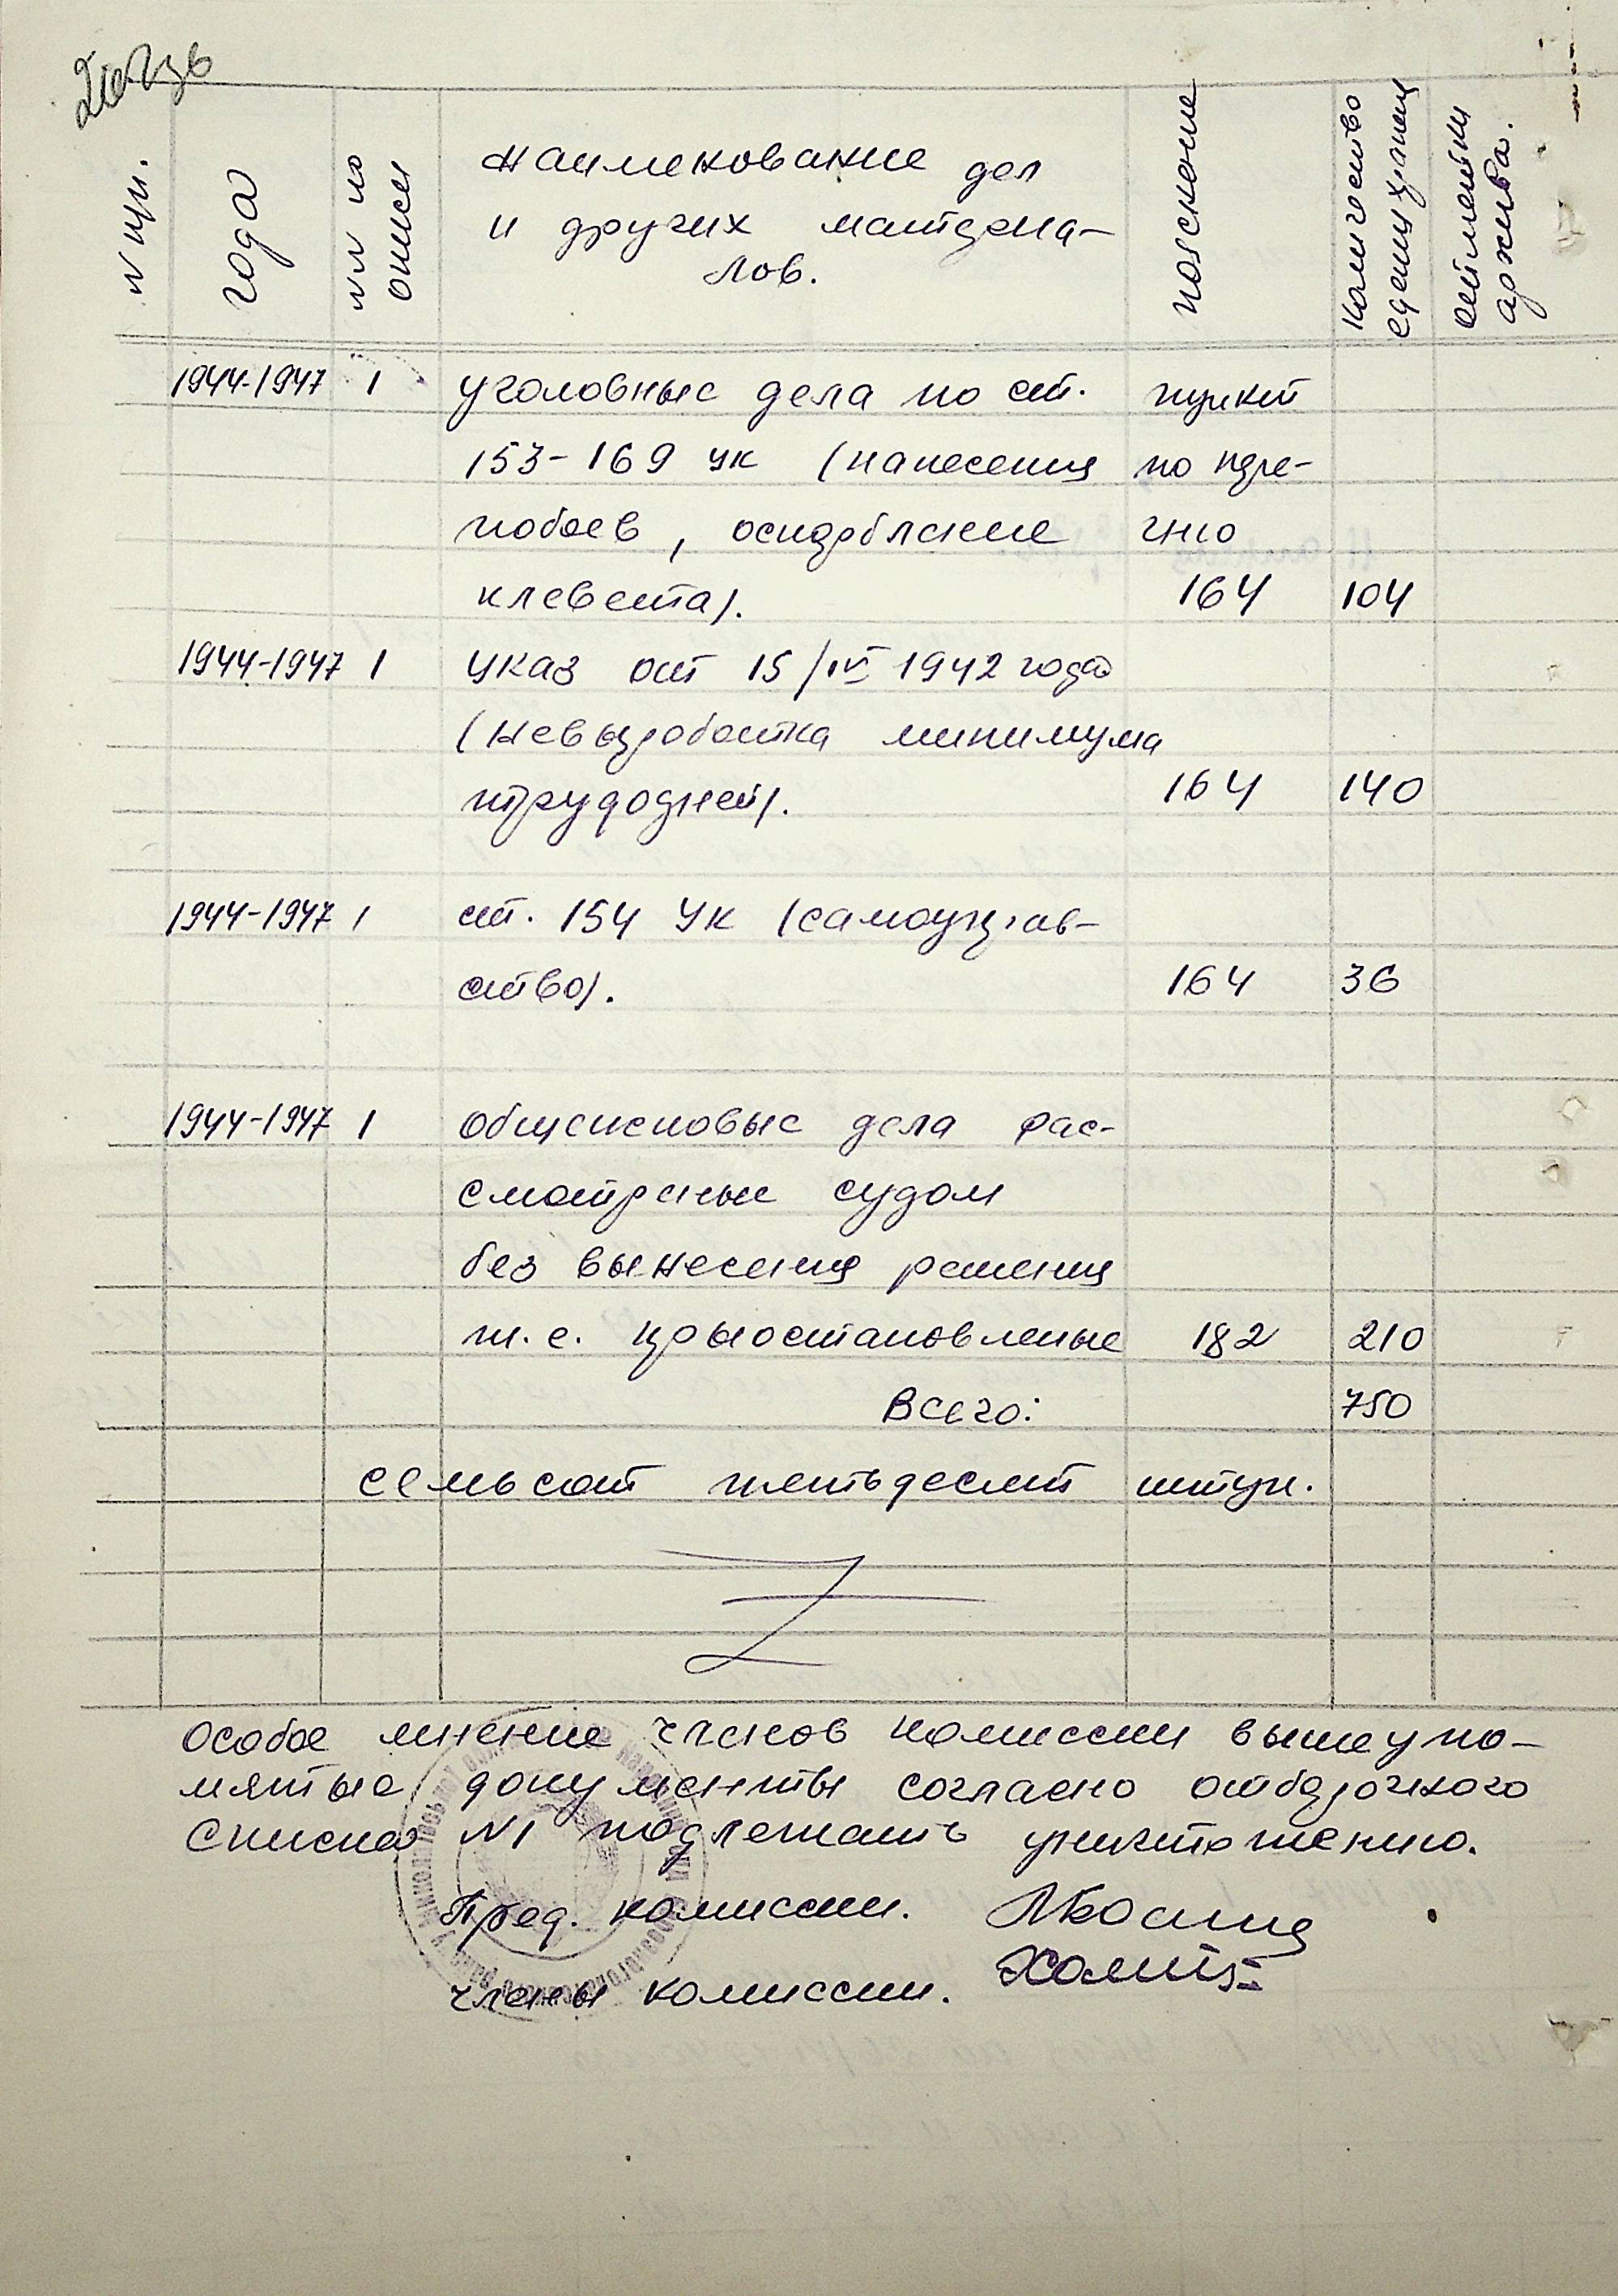 N пп.
года
NN по
описи
Наименование дел
и других материа-
лов.
пояснение
Количество
единиц хранен
отметки
архива.
1944-1947 1 уголовные дела по ст. пункт
153-169 ук (нанесения по переч-
побоев, оскорбление ню
клевета). 164 104
1944-1947 1 указ от 15/IV 1942 года
(невыработка минимума
трудодней). 164 140
1944-1947 1 ст. 154 УК (самоуправ-
ство). 164 36
1944-1947 1 общеисковые дела рас-
смотреные судом
без вынесения решения
т.е. приостановленые 182 210
Всего: 750
семьсот пятьдесят штук.
Особое мнение членов комиссии вышеупо-
мятые документы согласно отборочного
списка N1 подлежать уничтожению.
Пред. комиссии.
члены комиссии.